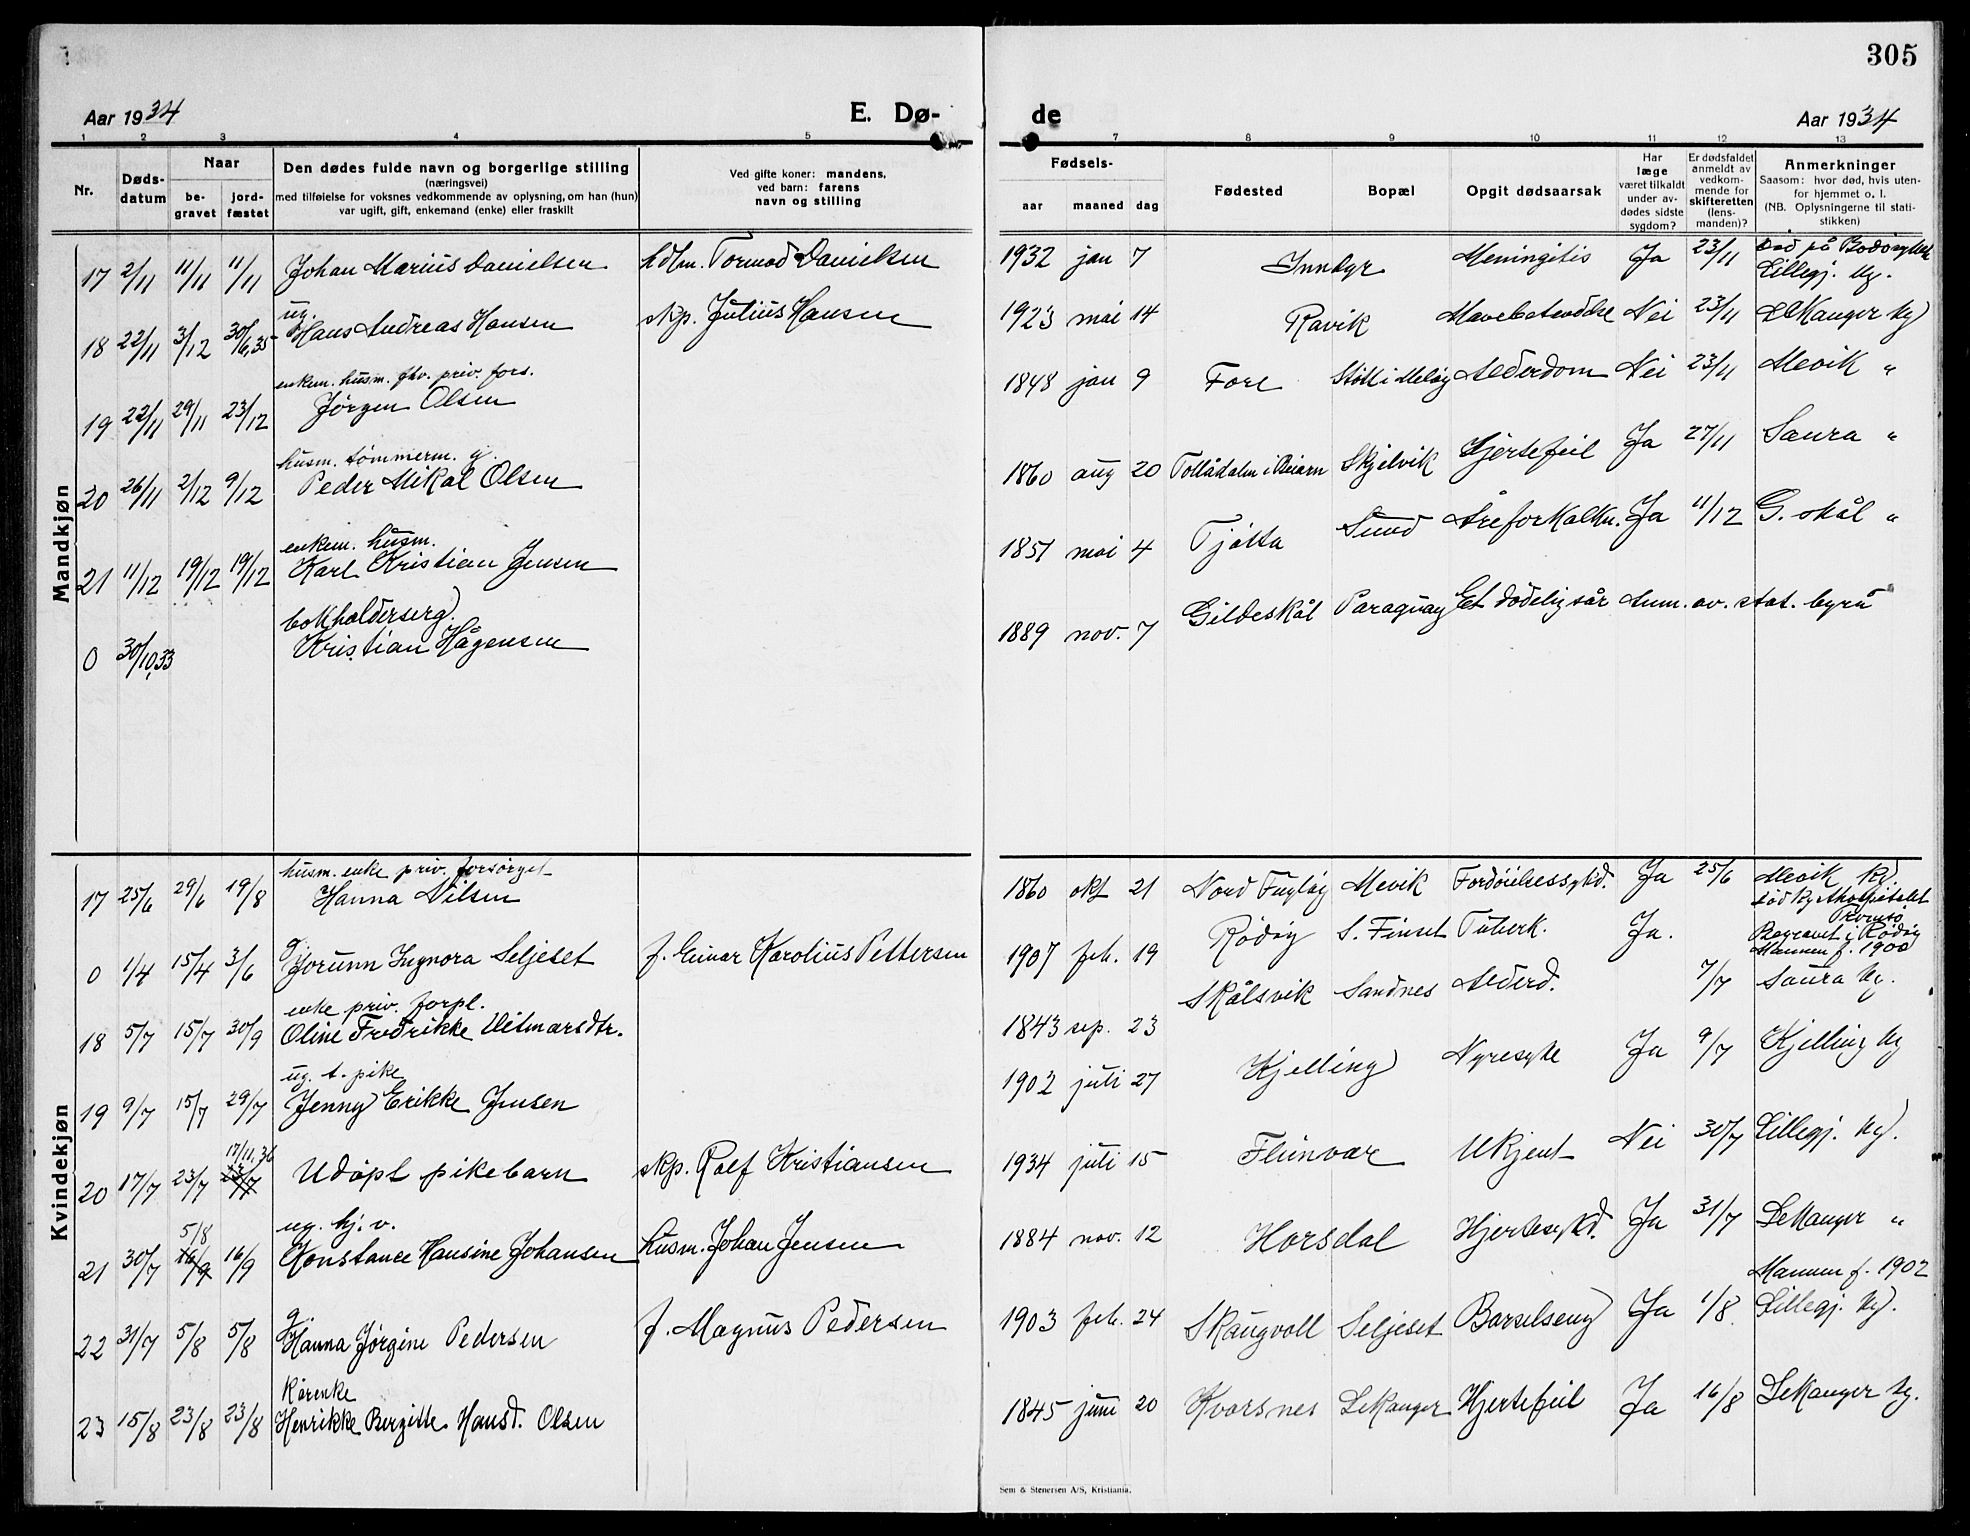 305
Aar 1934 E. Dø- de Aar 1934
1 2 3 4 5 7 8 9 10 11 12 13
Nr. Døds-datum Naar be-gravet jord-fæstet
Den dødes fulde navn og borgerlige stilling
(næringsvei)
med tilføielse for voksnes vedkommende av oplysning, om han (hun)
var ugift, gift, enkemand (enke) eller fraskilt
Ved gifte koner: mandens,
ved barn: farens
navn og stilling
Fødsels- aar maaned dag
Fødested Bopæl Opgit dødsaarsak
Har læge været tilkaldt under av-dødes sidste sygdom?
Er dødsfaldet anmeldt av vedkom-mende for skifteretten (lens-manden)?
Anmerkninger
Saasom: hvor død, hvis uten-
for hjemmet o. l.
(NB. Oplysningerne til stati-
stikken)
Mandkjøn
17 2/11 11/11 11/11 Johan Marius Danielsen hdlm. Tormod Danielsen 1932 jan 7 Inndyr Meningitis Ja 23/11 Død på Bodø sykeh. Lillegj. kg.
ug.
18 22/11 3/12 30/6,35 Hans Andreas Hansen skp. Julius Hansen 1923 mai 14 Ravik Nei 23/11
enkem. husm. fhv. priv. fors.
19 22/11 29/11 23/12 Jørgen Olsen 1848 jan 9 Fore Støtt i Meløy Alderdom Nei 23/11 Mevik "
husm. tømmerm. g.
20 26/11 2/12 9/12 Peder Mikal Olsen 1860 aug 20 Tollådalen i Beiarn Skjelvik Hjertefeil Ja 27/11 Saura "
enkem. husm.
21 11/12 19/12 19/12 Karl Kristian Jensen 1851 mai 4 Tjøtta Sund Åreforkalkn. Ja 11/12 G. skål "
bokholderserg.
0 30/10,33 Kristian Hågensen 1889 nov. 7 Gildeskål Paraguay Et dødelig sår Anm. av. stat. byrå
Kvindekjøn
husm. enke priv. forsørget
17 25/6 29/6 19/8 Hanna Nilsen 1860 okt 21 Nord Fugløy Mevik Fordøielsessykd. Ja 25/6 Mevik kg.
død sykehospitalet
Tromsø
g.
0 1/4 15/4 3/6 Jorunn Ingnora Seljeset f. Einar Karolius Pettersen 1907 feb. 19 Rødøy S. Finset Tuberk. Ja. Begravet i Rødøy
Mannen f. 1900
enke priv. forpl.
18 5/7 15/7 30/9 Oline Fredrikke Ditmarsdtr. 1843 sep. 23 Skålsvik Sandnes Alderd. 7/7 Saura kg.
ug. t. pike
19 9/7 15/7 29/7 Jenny Erikke Jensen 1902 juli 27 Kjelling Nyresyke Ja 9/7 Kjelling kg
17/11,36
20 17/7 23/7 23/7 Udøpt pikebarn skp. Rolf Kristiansen 1934 juli 15 Fleinvær Ukjent Nei 30/7 Lillegj. kg.
5/8 ug. hj. v.
21 30/7 16/9 16/9 Konstance Hansine Johansen husm. Johan Jensen 1884 nov. 12 Horsdal Hjertesykd. Ja 31/7 Lekanger "
Mannen f. 1902
g.
22 31/7 5/8 5/8 Hanna Jørgine Pedersen f. Magnus Pedersen 1903 feb. 24 Skaugvoll Seljeset Barselseng Ja 1/8 Lillegj. kg.
Kårenke
23 15/8 23/8 23/8 Henrikke Bergitte Hansd. Olsen 1845 juni 20 Kvarsnes Lekanger Hjertefeil Ja 16/8 Lekanger kg.
Sem & Stenersen A/S, Kristiania.